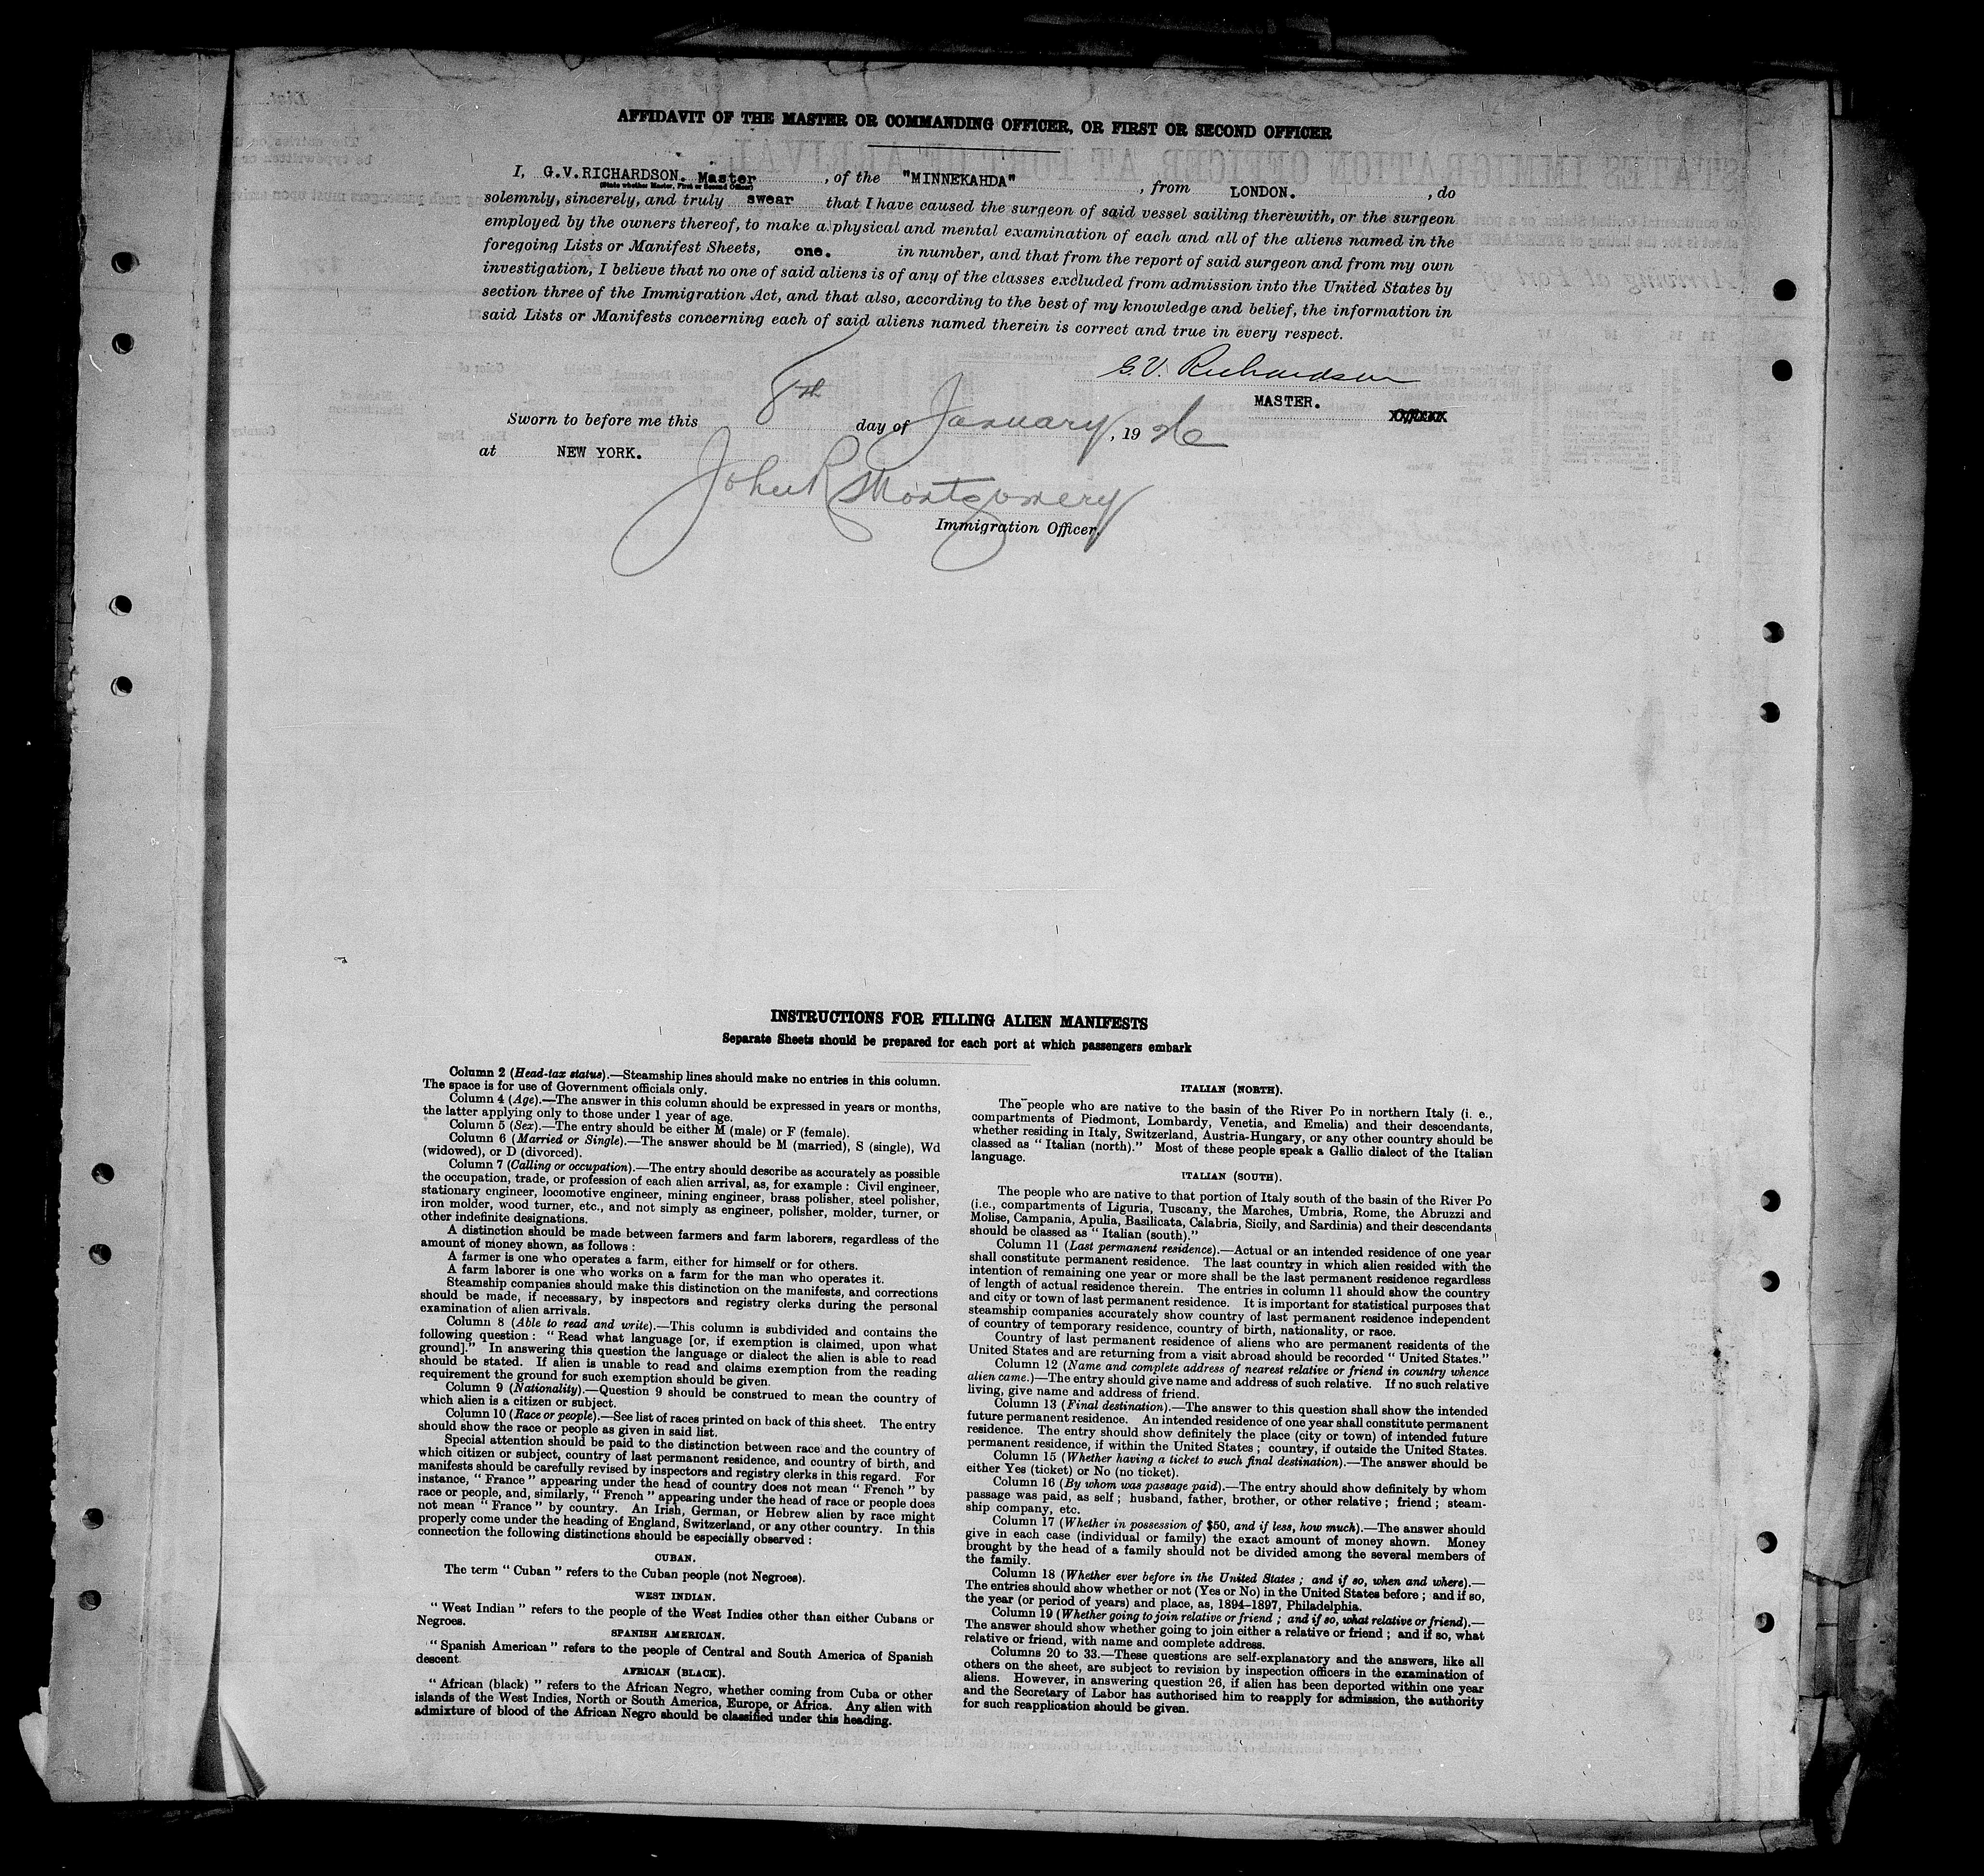 AFFIDAVIT OF THE MASTER OR COMMANDING OFFICER, OR FIRST OR SECOND OFFICER
I, G.V.RICHARDSON. Master , of the "MINNEKAHDA" , from LONDON. , do
(State whether Master, First or Second Officer)
solemnly, sincerely, and truly swear that I have caused the surgeon of said vessel sailing therewith, or the surgeon
employed by the owners thereof, to make a physical and mental examination of each and all of the aliens named in the
foregoing Lists or Manifest Sheets, one. in number, and that from the report of said surgeon and from my own
investigation, I believe that no one of said aliens is of any of the classes excluded from admission into the United States by
section three of the Immigration Act, and that also, according to the best of my knowledge and belief, the information in
said Lists or Manifests concerning each of said aliens named therein is correct and true in every respect.
G.V. Richardson
MASTER. Officer
Sworn to before me this 8th day of January, 1926
at NEW YORK.
John R Montgomery
Immigration Officer.
INSTRUCTIONS FOR FILLING ALIEN MANIFESTS
Separate Sheets should be prepared for each port at which passengers embark
Column 2 (Head-tax status).—Steamship lines should make no entries in this column.
The space is for use of Government officials only.
Column 4 (Age).—The answer in this column should be expressed in years or months,
the latter applying only to those under 1 year of age.
Column 5 (Sex).—The entry should be either M (male) or F (female).
Column 6 (Married or Single).—The answer should be M (married), S (single), Wd
(widowed), or D (divorced).
Column 7 (Calling or occupation).—The entry should describe as accurately as possible
the occupation, trade, or profession of each alien arrival, as, for example : Civil engineer,
stationary engineer, locomotive engineer, mining engineer, brass polisher, steel polisher,
iron molder, wood turner, etc., and not simply as engineer, polisher, molder, turner, or
other indefinite designations.
A distinction should be made between farmers and farm laborers, regardless of the
amount of money shown, as follows :
A farmer is one who operates a farm, either for himself or for others.
A farm laborer is one who works on a farm for the man who operates it.
Steamship companies should make this distinction on the manifests, and corrections
should be made, if necessary, by inspectors and registry clerks during the personal
examination of alien arrivals.
Column 8 (Able to read and write).—This column is subdivided and contains the
following question : " Read what language [or, if exemption is claimed, upon what
ground]." In answering this question the language or dialect the alien is able to read
should be stated. If alien is unable to read and claims exemption from the reading
requirement the ground for such exemption should be given.
Column 9 (Nationality).—Question 9 should be construed to mean the country of
which alien is a citizen or subject.
Column 10 (Race or people).—See list of races printed on back of this sheet. The entry
should show the race or people as given in said list.
Special attention should be paid to the distinction between race and the country of
which citizen or subject, country of last permanent residence, and country of birth, and
manifests should be carefully revised by inspectors and registry clerks in this regard. For
instance, " France " appearing under the head of country does not mean " French " by
race or people, and, similarly, " French " appearing under the head of race or people does
not mean " France " by country. An Irish, German, or Hebrew alien by race might
properly come under the heading of England, Switzerland, or any other country. In this
connection the following distinctions should be especially observed :
CUBAN.
The term " Cuban " refers to the Cuban people (not Negroes).
WEST INDIAN.
" West Indian " refers to the people of the West Indies other than either Cubans or
Negroes.
SPANISH AMERICAN.
" Spanish American " refers to the people of Central and South America of Spanish
descent
AFRICAN (BLACK).
" African (black) " refers to the African Negro, whether coming from Cuba or other
islands of the West Indies, North or South America, Europe, or Africa. Any alien with
admixture of blood of the African Negro should be classified under this heading.
ITALIAN (NORTH).
The people who are native to the basin of the River Po in northern Italy (i. e.,
compartments of Piedmont, Lombardy, Venetia, and Emelia) and their descendants,
whether residing in Italy, Switzerland, Austria-Hungary, or any other country should be
classed as " Italian (north)." Most of these people speak a Gallic dialect of the Italian
language.
ITALIAN (SOUTH).
The people who are native to that portion of Italy south of the basin of the River Po
(i.e., compartments of Liguria, Tuscany, the Marches, Umbria, Rome, the Abruzzi and
Molise, Campania, Apulia, Basilicata, Calabria, Sicily, and Sardinia) and their descendants
should be classed as " Italian (south)."
Column 11 (Last permanent residence).—Actual or an intended residence of one year
shall constitute permanent residence. The last country in which alien resided with the
intention of remaining one year or more shall be the last permanent residence regardless
of length of actual residence therein. The entries in column 11 should show the country
and city or town of last permanent residence. It is important for statistical purposes that
steamship companies accurately show country of last permanent residence independent
of country of temporary residence, country of birth, nationality, or race.
Country of last permanent residence of aliens who are permanent residents of the
United States and are returning from a visit abroad should be recorded " United States."
Column 12 (Name and complete address of nearest relative or friend in country whence
alien came.)—The entry should give name and address of such relative. If no such relative
living, give name and address of friend.
Column 13 (Final destination).—The answer to this question shall show the intended
future permanent residence. An intended residence of one year shall constitute permanent
residence. The entry should show definitely the place (city or town) of intended future
permanent residence, if within the United States ; country, if outside the United States.
Column 15 (Whether having a ticket to such final destination).—The answer should be
either Yes (ticket) or No (no ticket).
Column 16 (By whom was passage paid).—The entry should show definitely by whom
passage was paid, as self ; husband, father, brother, or other relative ; friend ; steam-
ship company, etc.
Column 17 (Whether in possession of $50, and if less, how much).—The answer should
give in each case (individual or family) the exact amount of money shown. Money
brought by the head of a family should not be divided among the several members of
the family.
Column 18 (Whether ever before in the United States ; and if so, when and where).—
The entries should show whether or not (Yes or No) in the United States before ; and if so,
the year (or period of years) and place, as, 1894–1897, Philadelphia.
Column 19 (Whether going to join relative or friend ; and if so, what relative or friend).—
The answer should show whether going to join either a relative or friend ; and if so, what
relative or friend, with name and complete address.
Columns 20 to 33.—These questions are self-explanatory and the answers, like all
others on the sheet, are subject to revision by inspection officers in the examination of
aliens. However, in answering question 26, if alien has been deported within one year
and the Secretary of Labor has authorised him to reapply for admission, the authority
for such reapplication should be given.